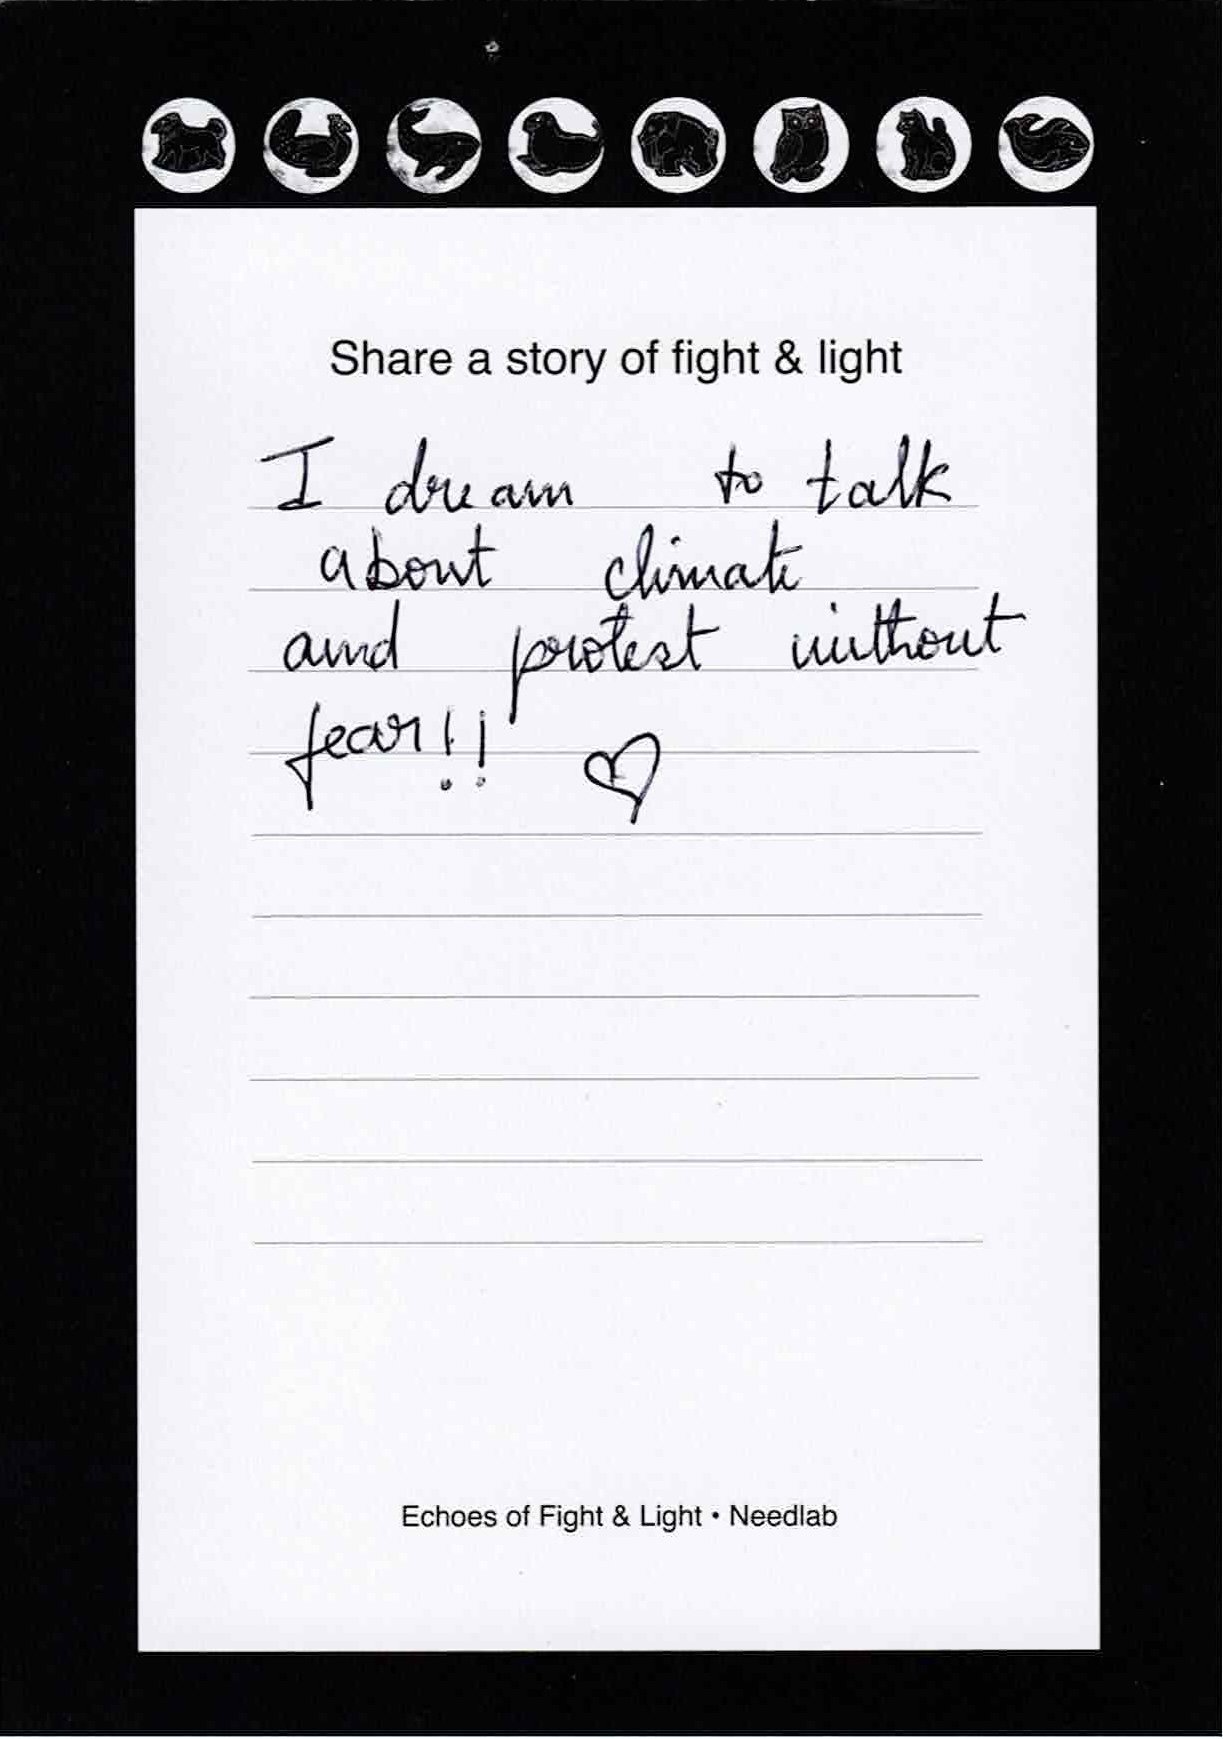 Share a story of fight & light
I dream to talk
about climate
and protest without
fear!! ♡
Echoes of Fight & Light • Needlab